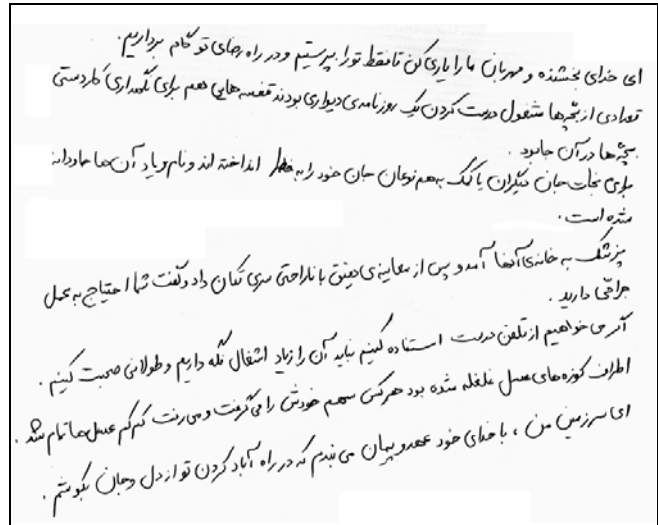 ای خدای بخشنده و مهربان ما را یاری کن تا فقط تو را بپرستیم و در راه رضای تو گام برداریم.
تعدادی از بچّه‌ها مشغول درست کردن یک روزنامه‌ی دیواری بودند قفسه‌هایی هم برای نگهداری کاردستی
بچّه‌ها در آن جا بود.
برای نجات جان دیگران یا کمک به هم نوعان جان خود را به خطر انداخته اند و نام و یاد آن ها جاودانه
شده است.
پزشک به خانه‌ی آنها آمد و پس از معاینه‌ی دقیق با ناراحتی سری تکان داد و گفت شما احتیاج به عمل
جراحی دارید.
اگر می خواهیم از تلفن درست استفاده کنیم نباید آن را زیاد اشغال نگه داریم و طولانی صحبت کنیم.
اطراف کوزه‌های عسل غلغله شده بود هر کس سهم خودش را می گرفت و می رفت کم کم عسل ها تمام شد.
ای سرزمین من، با خدای خود عهد و پیمان می بندم که در راه آباد کردن تو از دل و جان بکوشم.